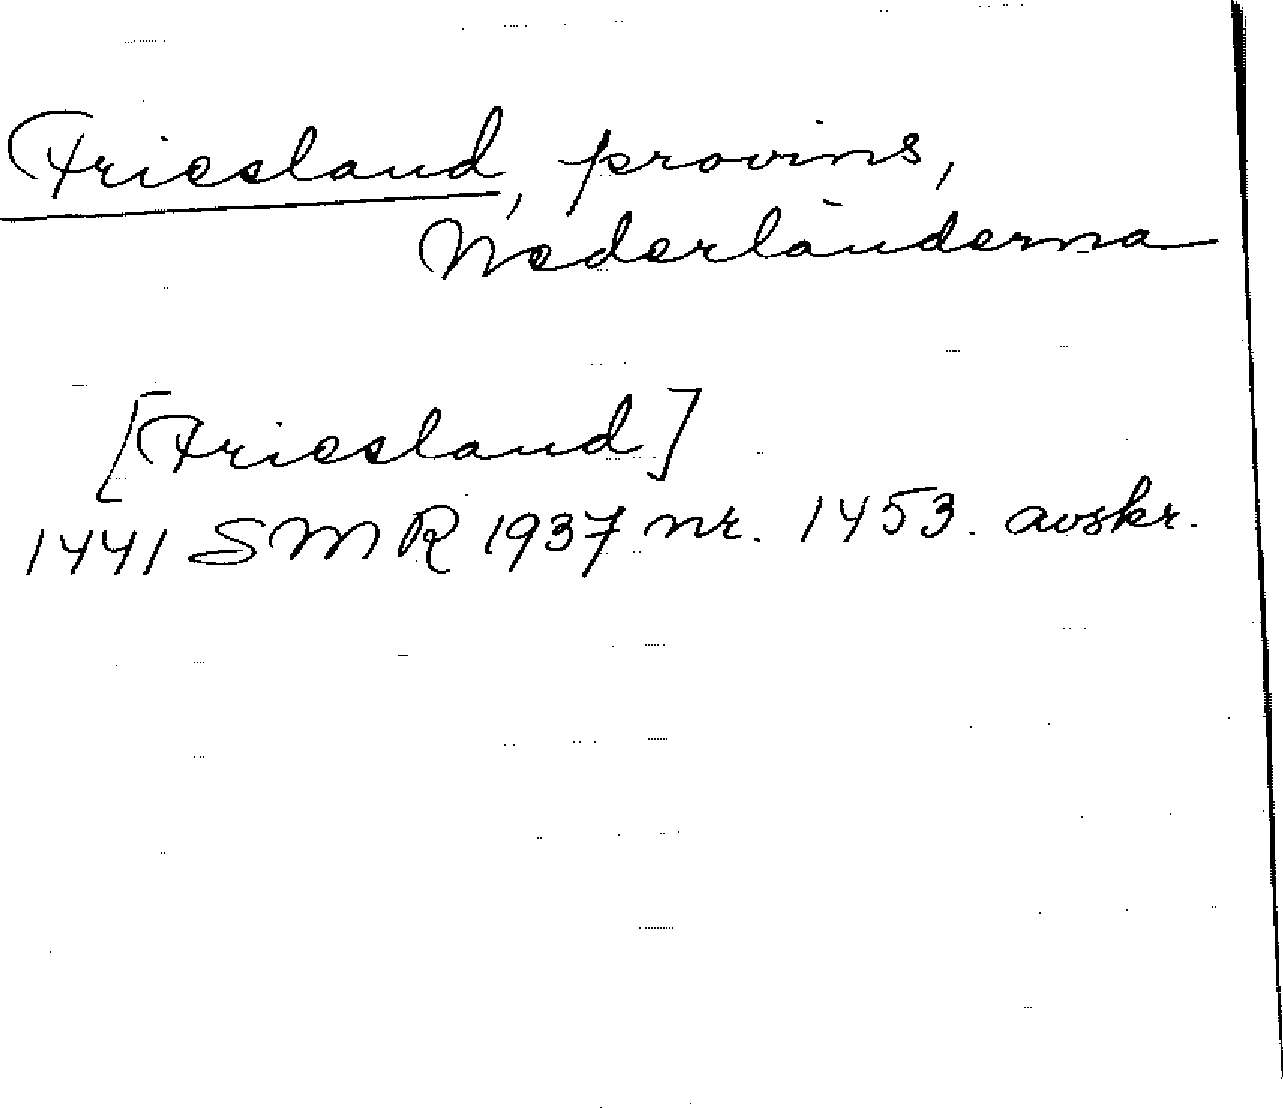 Friesland, provins,
Nederländerna
[Friesland]
1441 SMR 1937 nr. 1453. avskr.